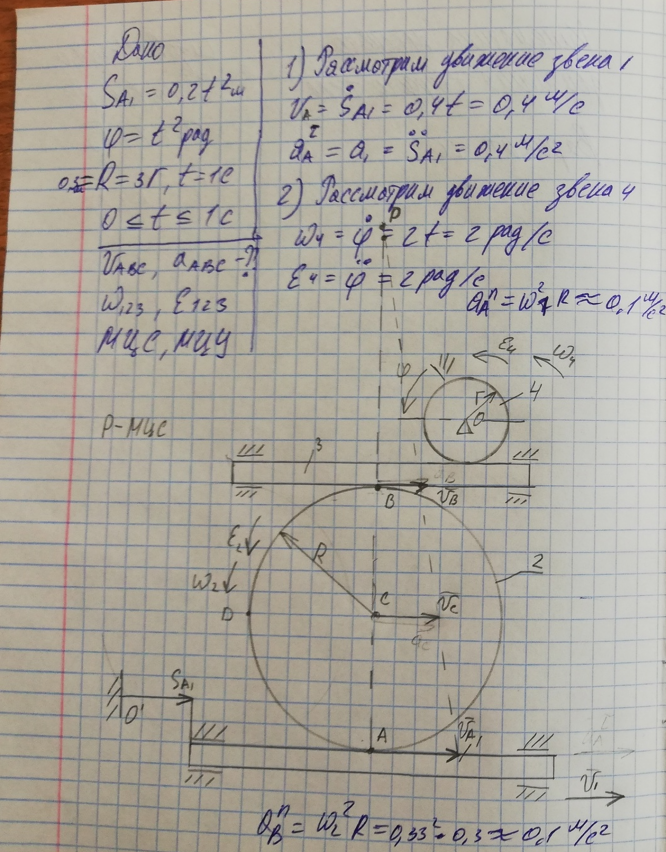 Дано
S_A1 = 0,2t² м
φ = t² рад
0,3 = R = 3r, t = 1c
0 ≤ t ≤ 1c
V_ABC, a_ABC - ?
ω_123, ε_123
МЦС, МЦУ
1) Рассмотрим движение звена 1
V_A = Ṡ_A1 = 0,4t = 0,4 м/с
a_A^τ = a_1 = S̈_A1 = 0,4 м/с²
2) Рассмотрим движение звена 4
P
ω_4 = φ̇ = 2t = 2 рад/с
ε_4 = φ̈ = 2 рад/с
a_A^n = ω² R ≈ 0,1 м/с²
ε_4 ω_4
φ
r 4
O
P - МЦС
3
B V_B
ε_2 R 2
ω_2
D C V_C
a_C
S_A1
O'
A V_A1
V_1
a_B^n = ω_2² R = 0,33² · 0,3 ≈ 0,1 м/с²